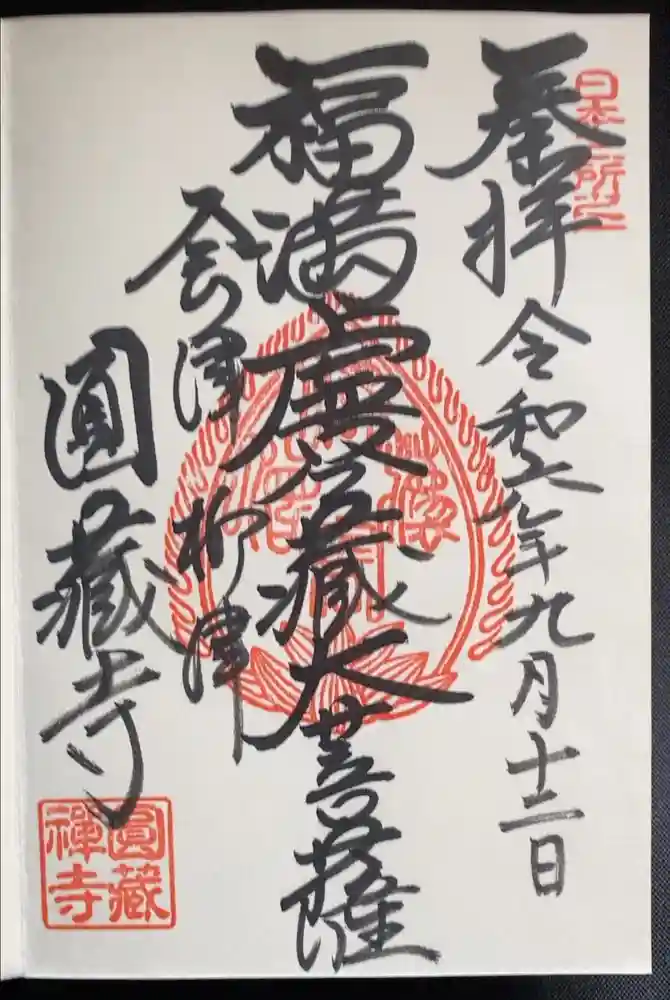 奉拝
令和六年九月十二日
福満虚空藏大菩薩
会津
柳津
圓藏寺
日本三所之一
圓藏
禅寺